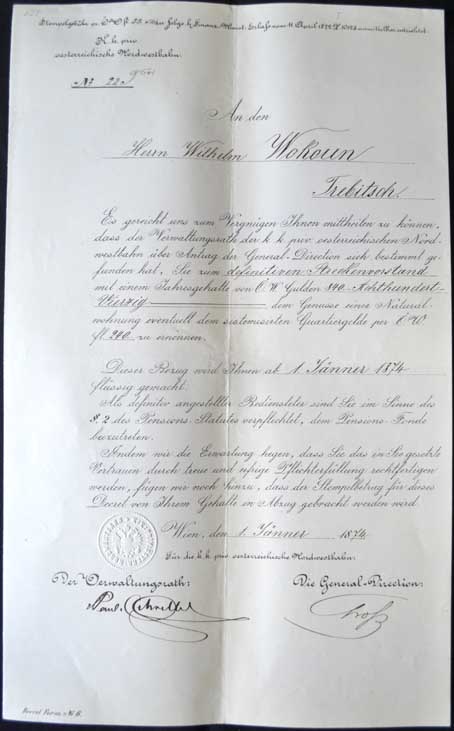 K. k. priv.
oesterreichische Nordwestbahn.
No 22
An den
Herrn Wilhelm Wokoun
Trebitsch.
Es gereicht uns zum Vergnügen Ihnen mittheilen zu können,
dass der Verwaltungsrath der k. k. priv. oesterreichischen Nord-
westbahn über Antrag der General-Direction sich bestimmt ge-
funden hat, Sie zum definitiven Streckenvorstand
mit einem Jahresgehalte von Ö. W. Gulden 840. Achthundert-
Vierzig dem Genusse einer Natural-
wohnung eventuell dem sistemisirten Quartiergelde per Ö. W.
fl. 240 zu ernennen.
Dieser Bezug wird Ihnen ab 1. Jänner 1874
flüssig gemacht.
Als definitiv angestellter Bediensteter sind Sie im Sinne des
§. 2 des Pensions-Statutes verpflichtet, dem Pensions-Fonde
beizutreten.
Indem wir die Erwartung hegen, dass Sie das in Sie gesetzte
Vertrauen durch treue und eifrige Pflichterfüllung rechtfertigen
werden, fügen wir noch hinzu, dass der Stempelbetrag für dieses
Decret von Ihrem Gehalte in Abzug gebracht werden wird.
Wien, den 1. Jänner 1874
Für die k. k. priv. oesterreichische Nordwestbahn:
Der Verwaltungsrath: Die General-Direction:
Paul Groß